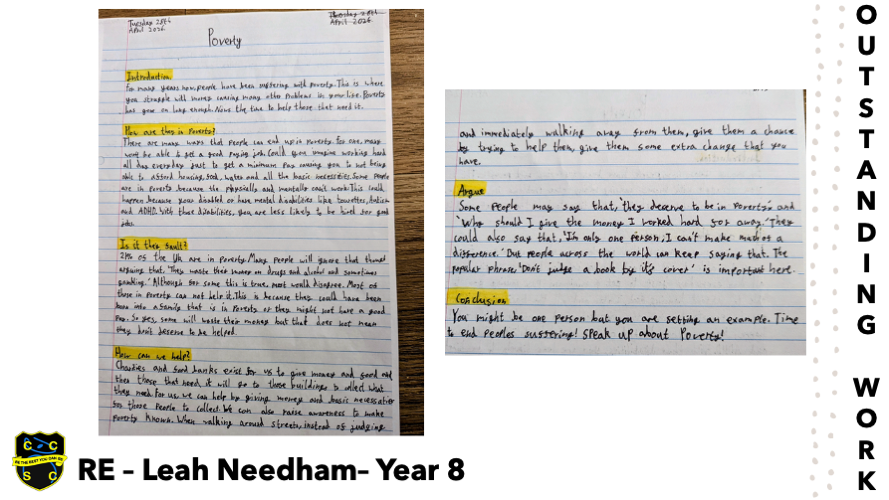 Tuesday 28th
April 2026.
Tuesday 28th
April 2026.
Poverty
Introduction.
For many years now, people have been suffering with poverty. This is where
you struggle will money causing many other problems in your live. Poverty
has gone on long enough. Nows the time to help those that need it.
How are they in Poverty?
There are many ways that people can end up in Poverty. For one, many
wont be able to get a good paying job. Could you imagine working hard
all day everyday just to get a minimum pay causing you to not being
able to afford housing, food, water and all the basic necessities. Some people
are in Poverty because the physically and mentally can't work. This could
happen because your disabled or have mental disabilities like tourettes,
and ADHD. With those disabilities, you are less likely to be hired for good
jobs.
Is it they fault?
21% of the Uk are in Poverty. Many people will ignore that though
arguing that, 'They waste their money on drugs and alcohol and sometimes
gambling.' Although for some this is true, most would disagree. Most of
those in Poverty can not help it. This is because they could have been
born into a family that is in Poverty or they might not have a good
Pay. So yes, some will waste their money but that does not mean
they don't deserve to be helped.
How can we help?
Charities and food banks exist for us to give money and food and
then those that need it will go to those buildings to collect what
they need. For us, we can help by giving money and basic necessaties
for those People to collect. We can also raise awareness to make
Poverty known. When walking around streets, instead of judging
and immediately walking away from them, give them a chance
by trying to help them, give them some extra change that you
have.
Argue
Some People may say that, 'they deserve to be in Poverty' and
'Why should I give the money I worked hard for away.' They
could also say that, 'I'm only one person, I can't make much of a
difference.' But people across the world can keep saying that. The
popular phrase 'Don't judge a book by it's cover' is important here.
Conclusion
You might be one person but you are setting an example. Time
to end peoples suffering! Speak up about Poverty!
C C
BE THE BEST YOU CAN BE
S C
RE – Leah Needham– Year 8
OUTSTANDING WORK